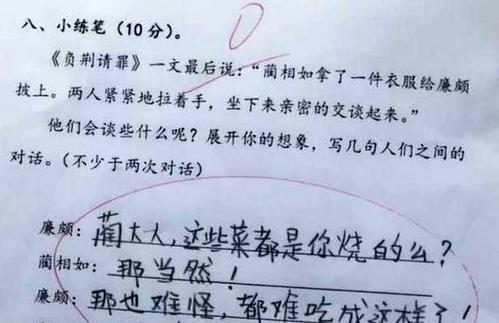 八、小练笔（10分）。
0
《负荆请罪》一文最后说：“蔺相如拿了一件衣服给廉颇
披上。两人紧紧地拉着手，坐下来亲密的交谈起来。”
他们会谈些什么呢？展开你的想象，写几句人们之间的
对话。（不少于两次对话）
廉颇：蔺大人，这些菜都是你烧的么？
蔺相如：那当然！
廉颇：那也难怪，都难吃成这样了！